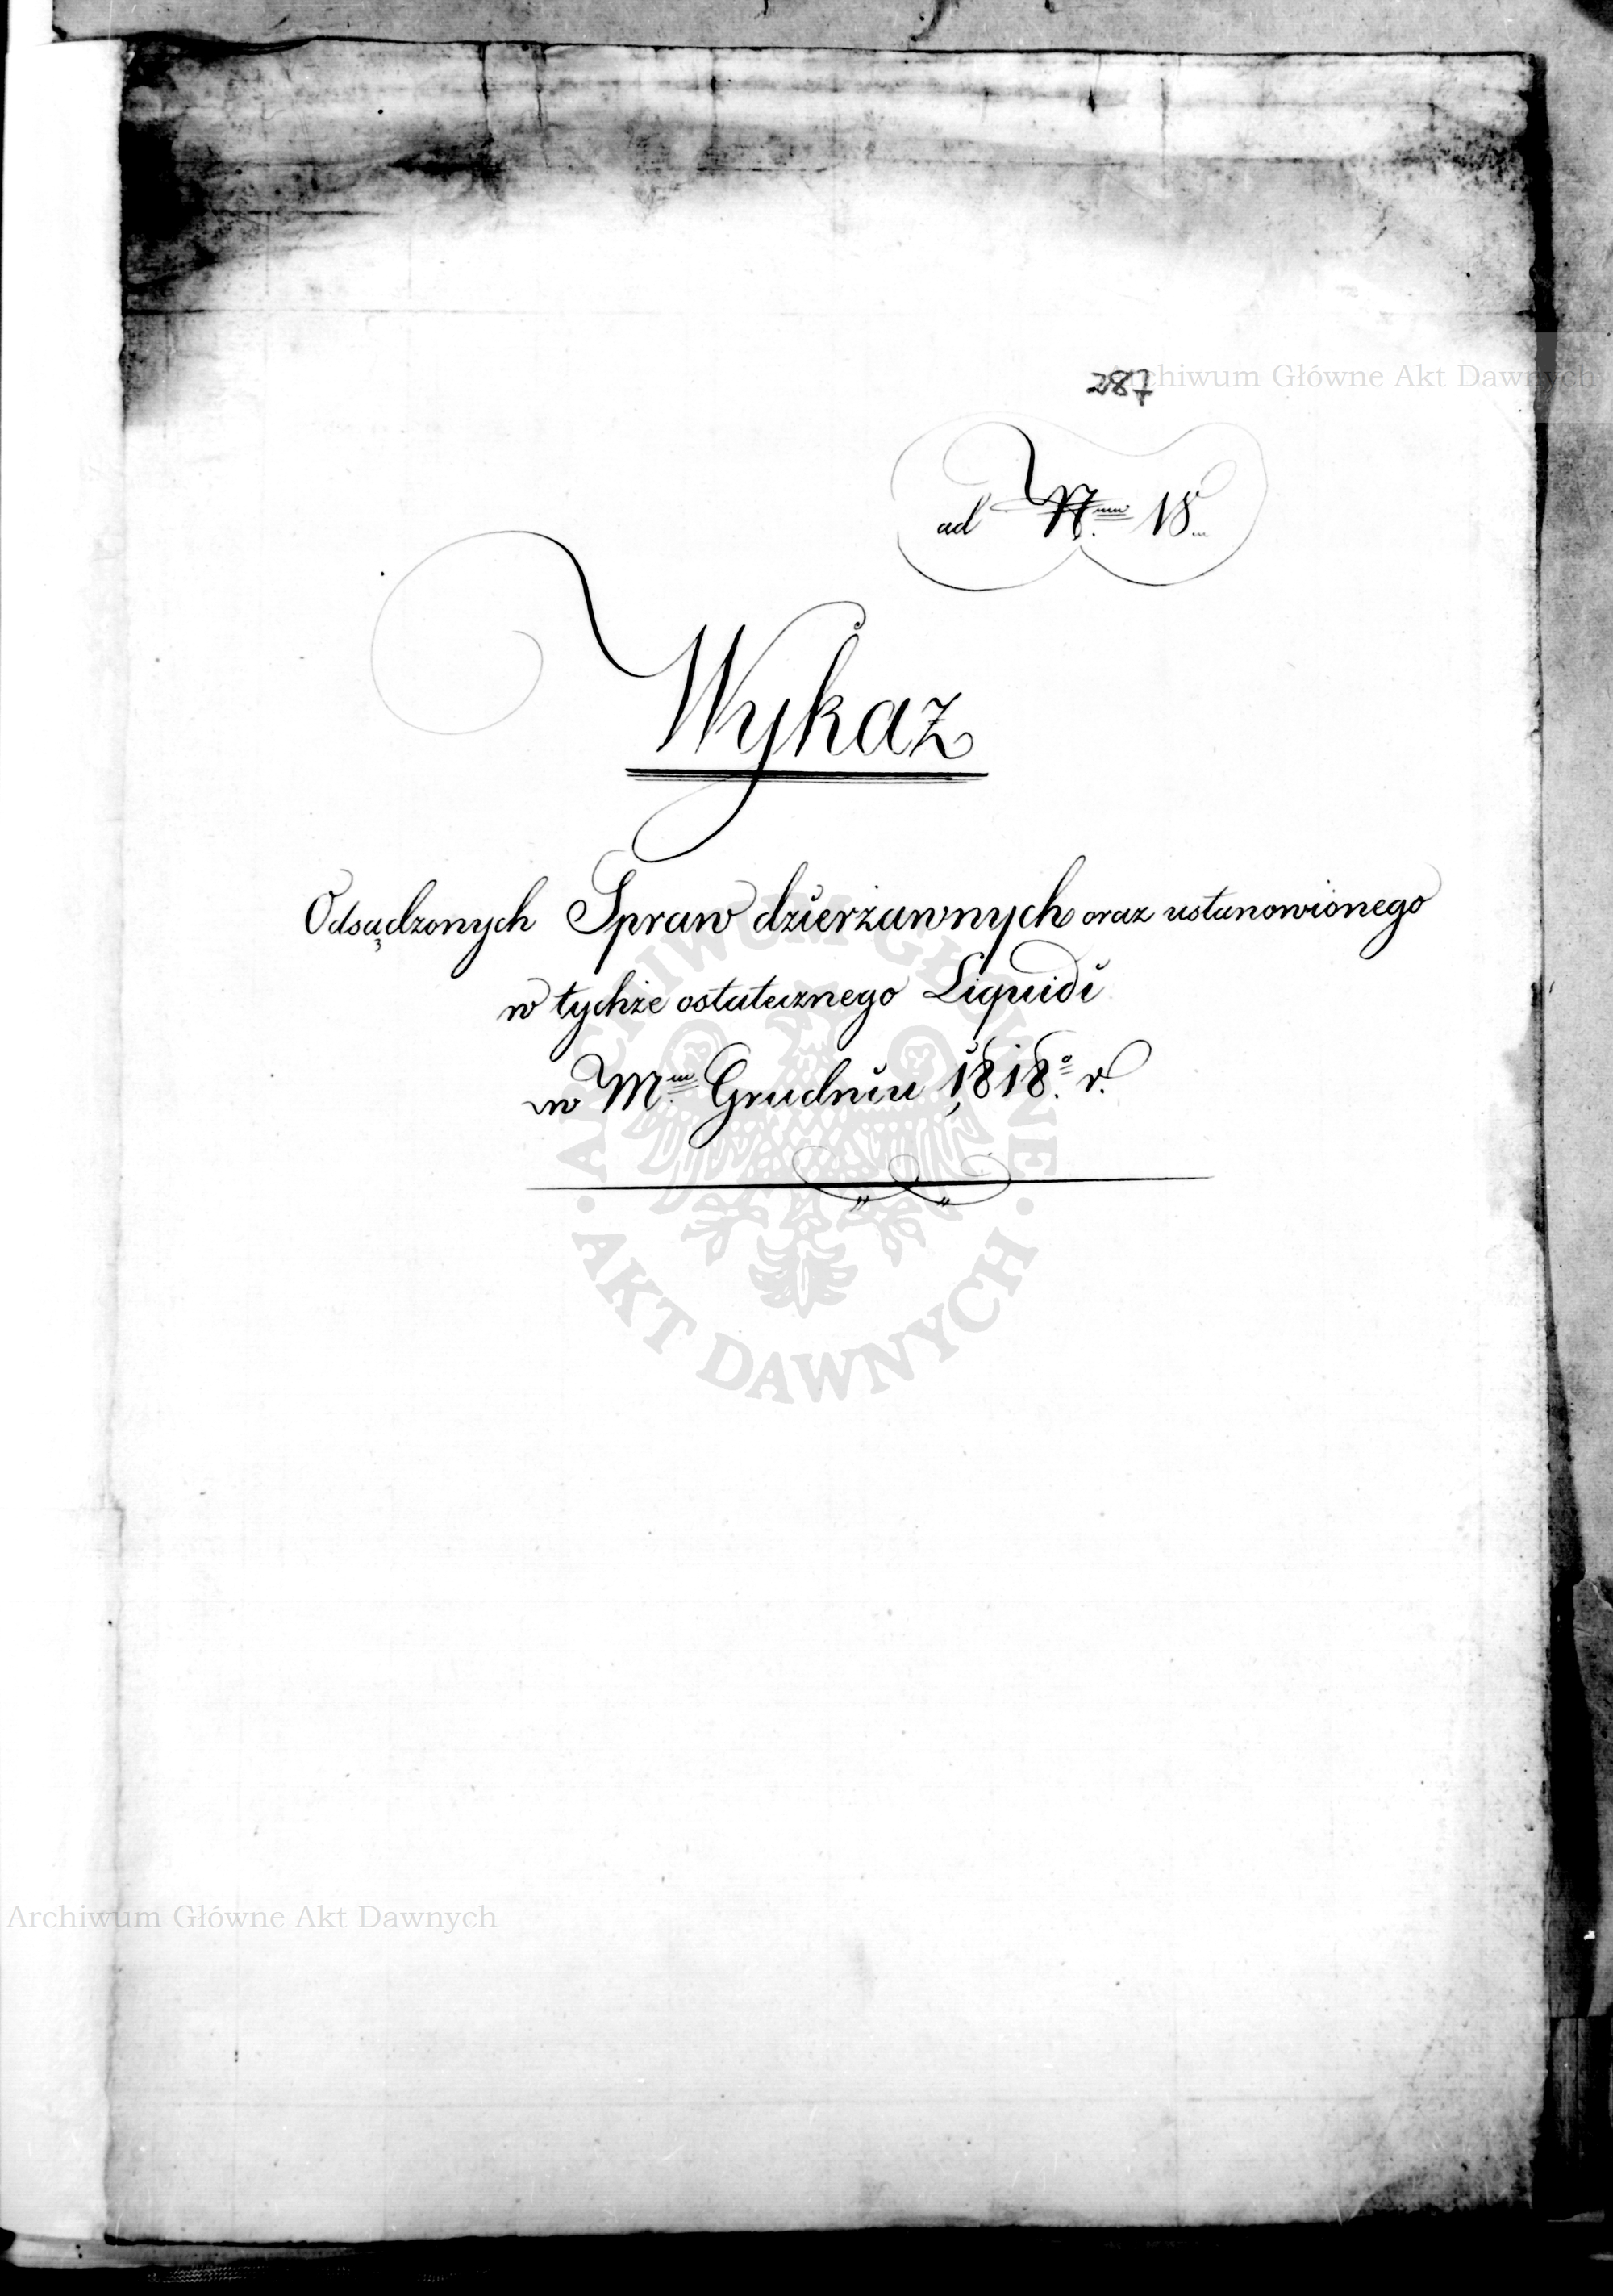 287
ad Num 18
Wykaz
Odsądzonych Spraw dzierżawnych oraz ustanowionego
w tychże ostatecznego Liquidi
w Mcu Grudniu 1818o r.
Archiwum Główne Akt Dawnych
ARCHIWUM GŁÓWNE AKT DAWNYCH
Archiwum Główne Akt Dawnych